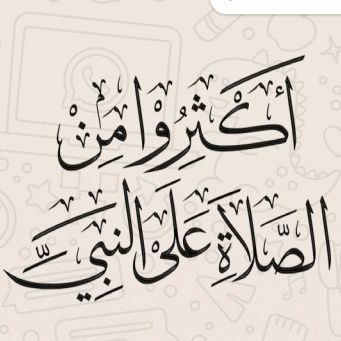 أَكْثِرُوْا مِنْ
الصَّلَاةِ عَلَى النَّبِيِّ